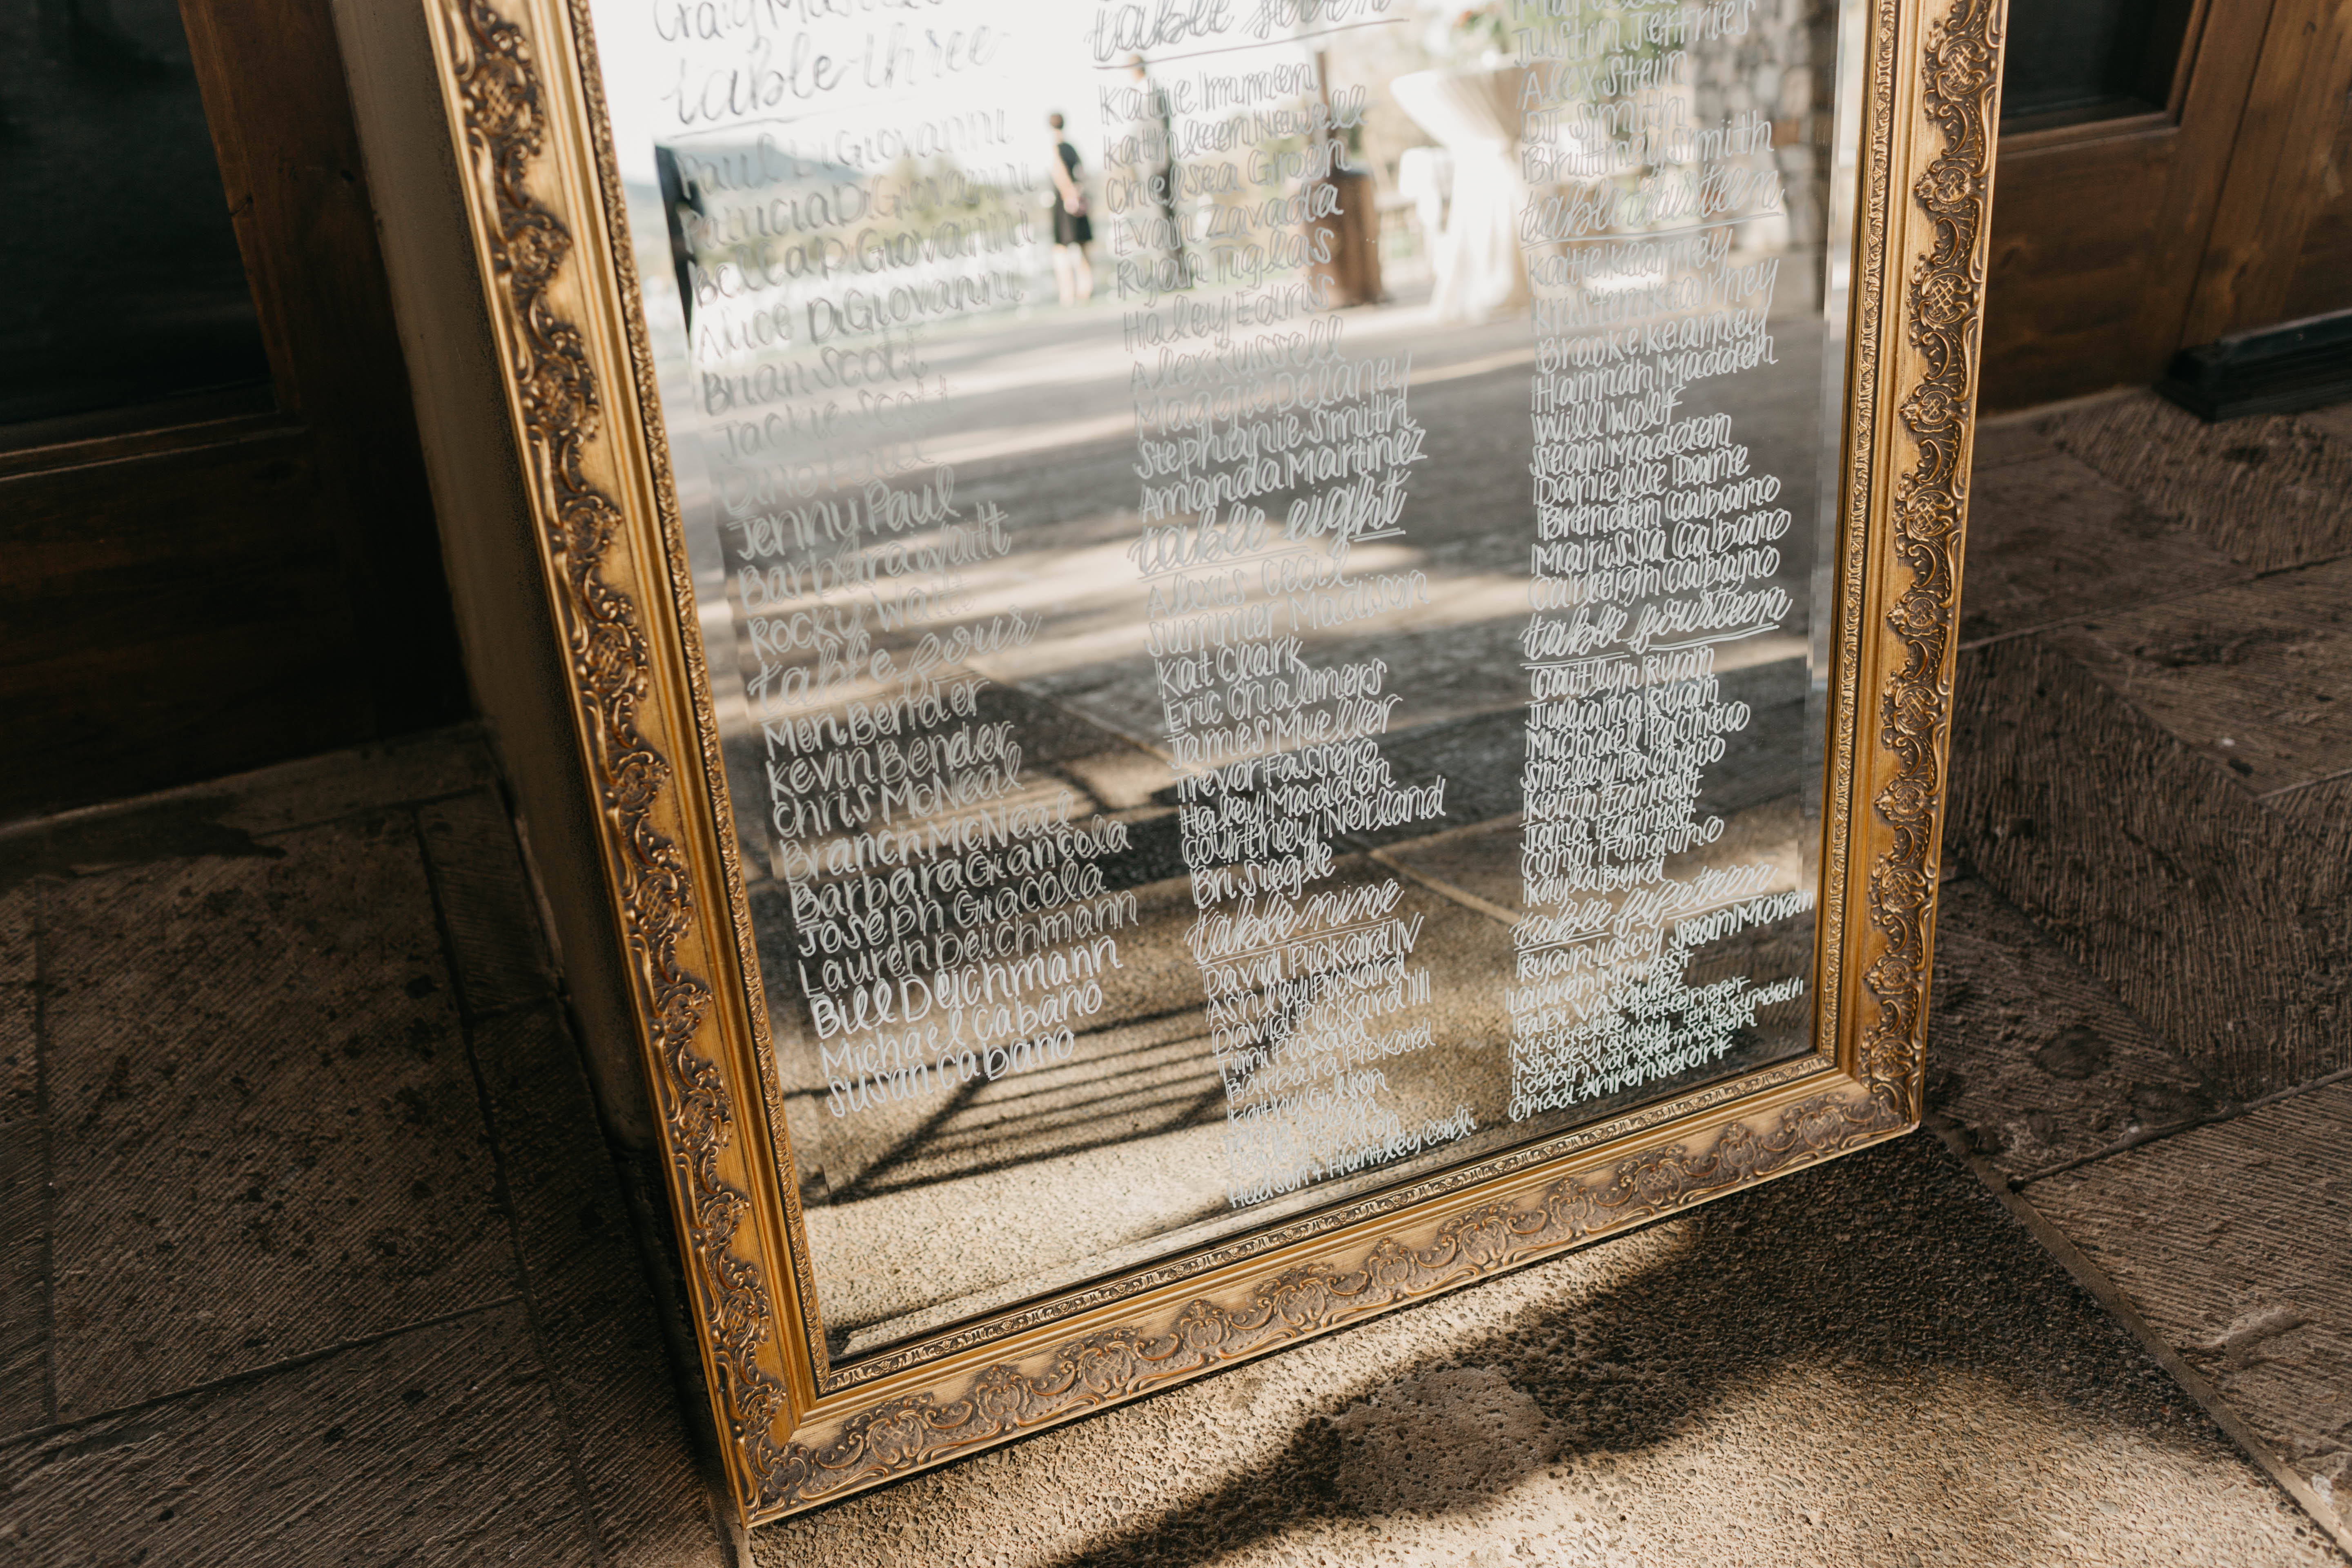 Craig
table three
Paul DiGiovanni
Patricia DiGiovanni
Bella DiGiovanni
Alice DiGiovanni
Brian Scott
Jackie Scott
Dino
Jenny Paul
Barbara Watt
Rocky Watt
table four
Meri Bender
Kevin Bender
Chris McNeal
Branch McNeal
Barbara Giancola
Joseph Giacola
Lauren Deichmann
Bill Deichmann
Michael Cabano
Susan Cabano
table seven
Katie Immen
Kathleen Newell
Chelsea Green
Evan Zavada
Ryan Tiglas
Haley Edras
Alex Russell
Maggie Delaney
Stephanie Smith
Amanda Martinez
table eight
Alexis Cecil
Summer Madison
Kat Clark
Eric Chalmers
James Mueller
Trevor Fassero
Haley Madden
Courtney Norland
Bri Siegle
table nine
David Pickard IV
Ashley Pickard
David Pickard III
Timi Pickard
Barbara Pickard
Kathy Gilson
Hudson + Huntley
Justin Jeffries
Alex Stein
DJ Smith
Brittney Smith
table thirteen
Kate Kearney
Kristen Kearney
Brooke Kearney
Hannah Madden
Will Wolf
Sean Madden
Danielle Dame
Brenden Cabano
Marissa Cabano
Carleigh Cabano
table fourteen
Caitlyn Ryan
Juliana Ryan
Michael Pacheco
Shelley Pacheco
Keith Earnest
Jana Earnest
Conor
Kayla Byrd
table fifteen
Ryan Lacy Sean Moran
Lauren Morast
Fabi Vasquez
Ashley
Logan
Chad